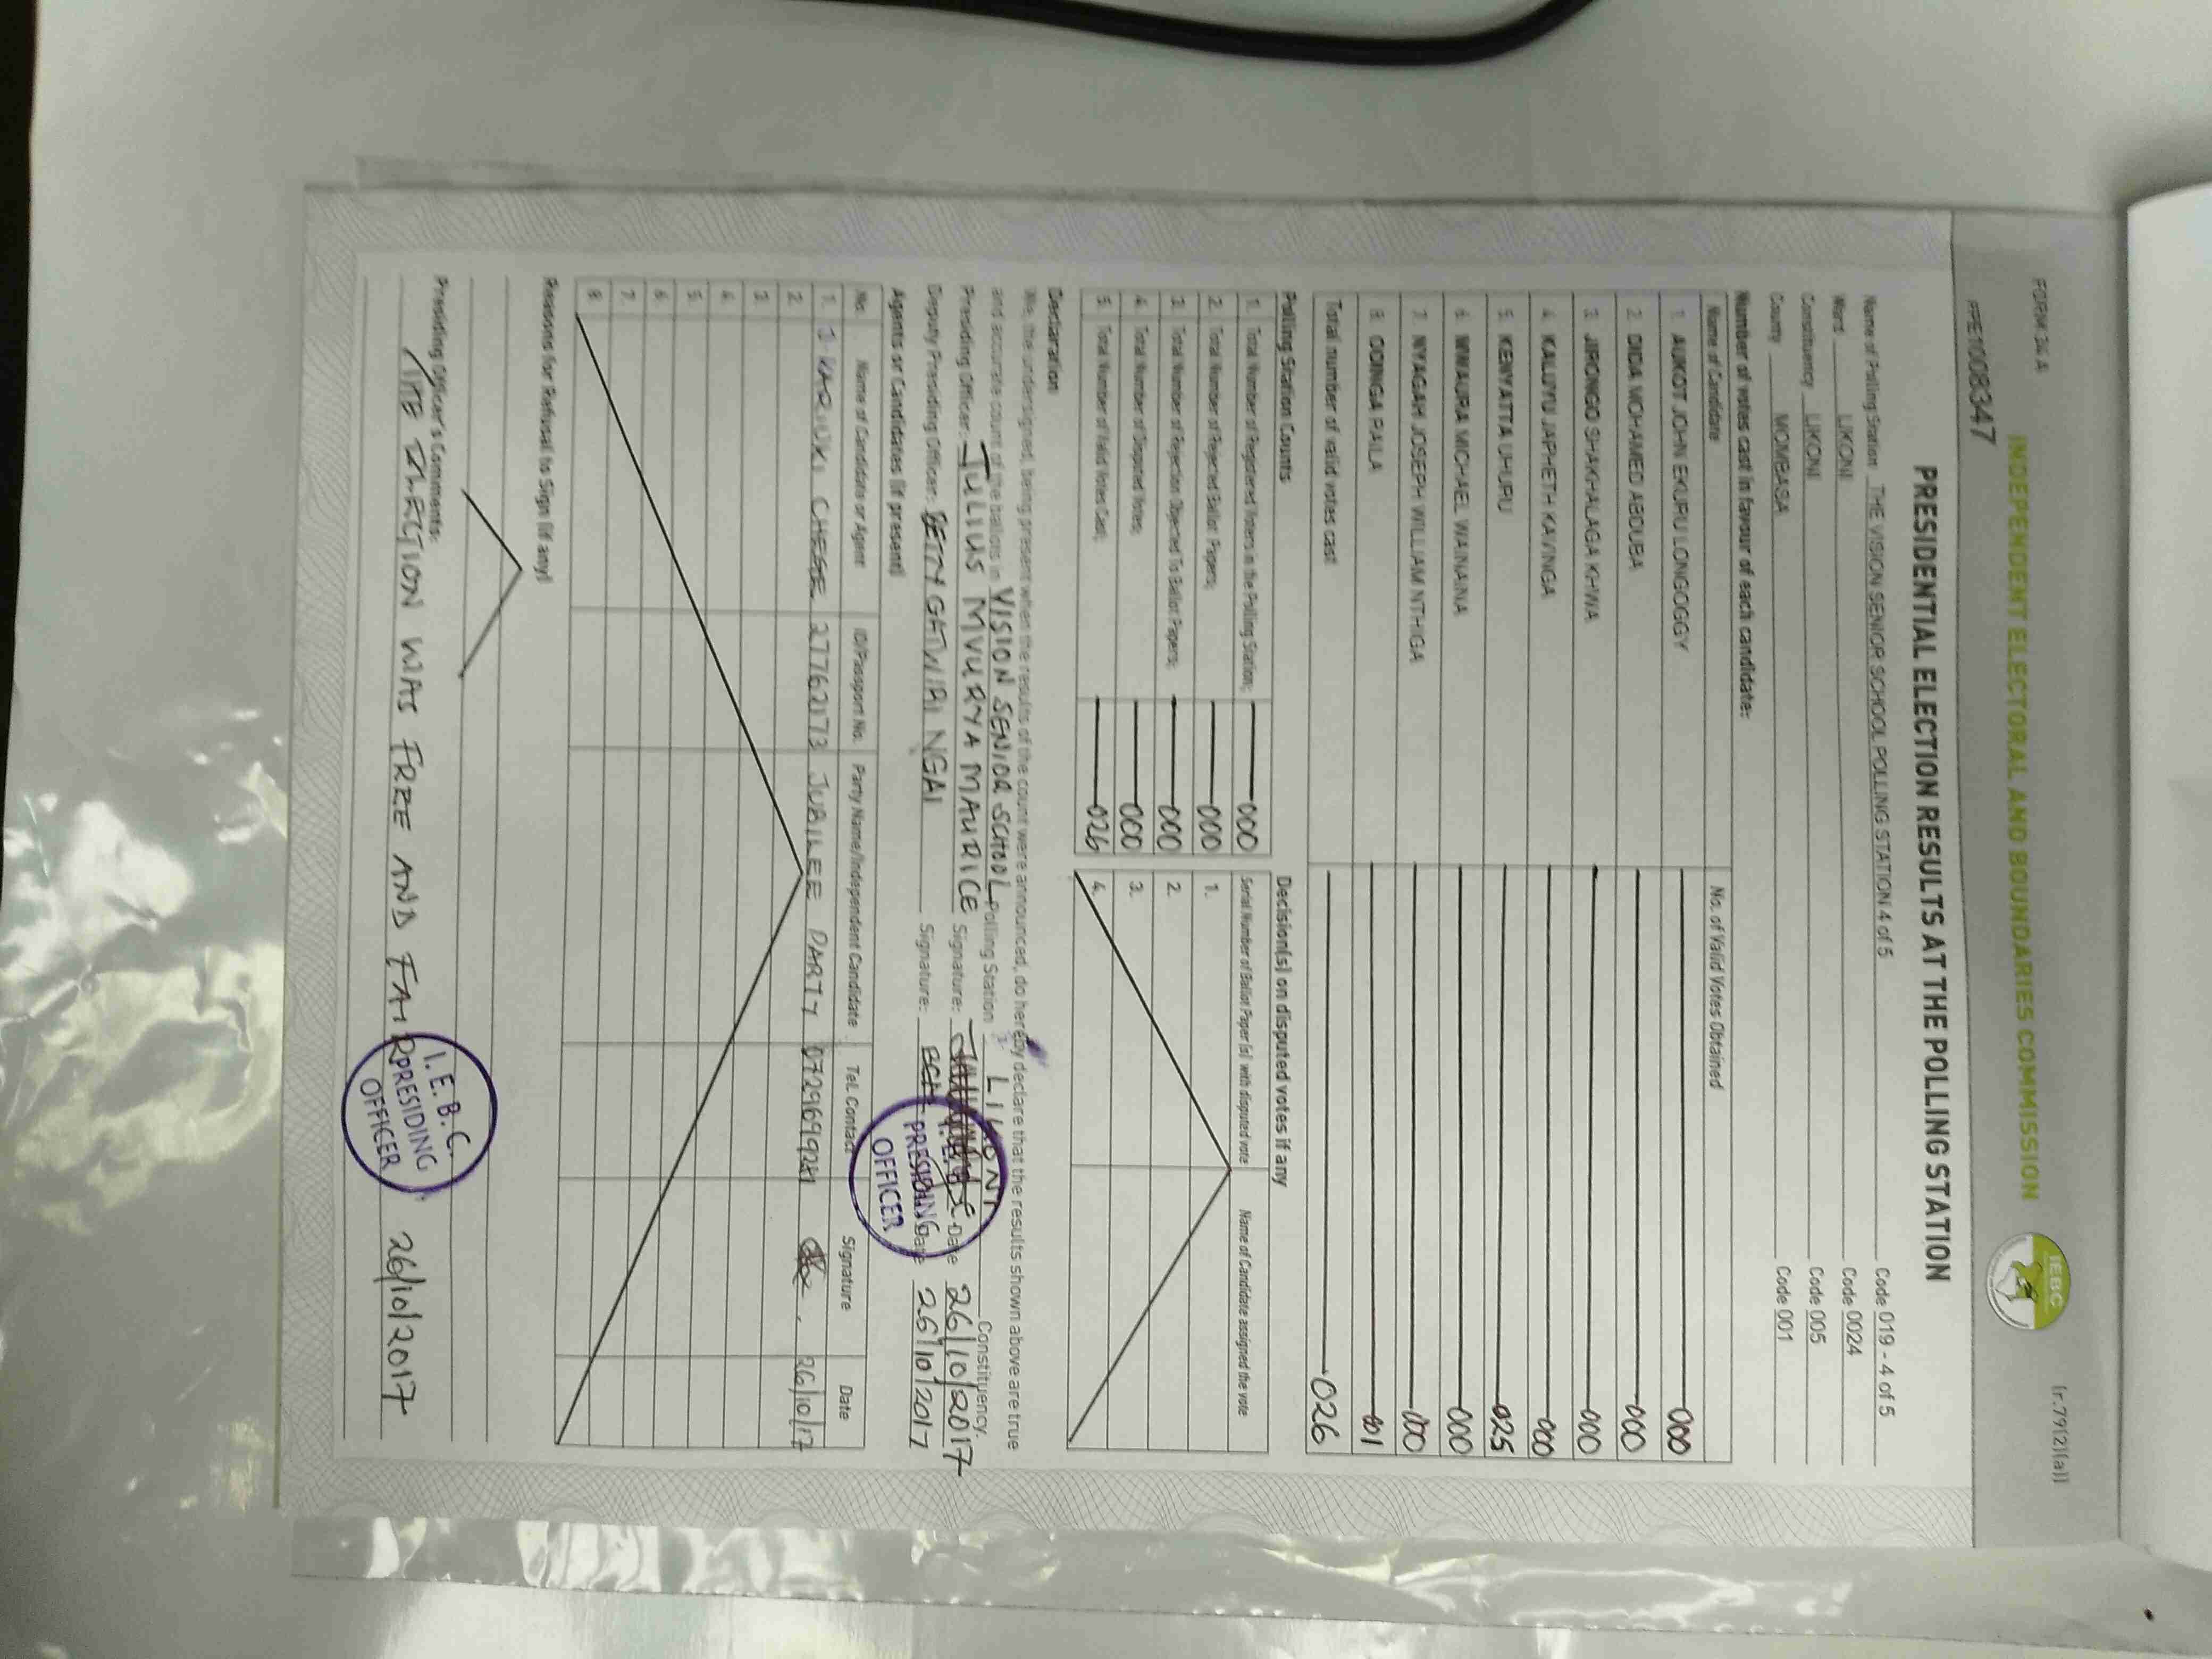 FORM 34 A
(r.79(2)(a))
INDEPENDENT ELECTORAL AND BOUNDARIES COMMISSION
IEBC
PRE1008347
PRESIDENTIAL ELECTION RESULTS AT THE POLLING STATION
Name of Polling Station THE VISION SENIOR SCHOOL POLLING STATION 4 of 5 Code 019 - 4 of 5
Ward LIKONI Code 0024
Constituency LIKONI Code 005
County MOMBASA Code 001
Number of votes cast in favour of each candidate:
Name of Candidate No. of Valid Votes Obtained
1. AUKOT JOHN EKURU LONGOGGY 000
2. DIDA MOHAMED ABDUBA 000
3. JIRONGO SHAKHALAGA KHWA 000
4. KALUYU JAPHETH KAVINGA 000
5. KENYATTA UHURU 025
6. MWAURA MICHAEL WAINAINA 000
7. NYAGAH JOSEPH WILLIAM NTHIGA 000
8. ODINGA RAILA 001
Total number of valid votes cast 026
Polling Station Counts
1. Total Number of Registered Voters in the Polling Station; 000
2. Total Number of Rejected Ballot Papers; 000
3. Total Number of Rejection Objected To Ballot Papers; 000
4. Total Number of Disputed Votes; 000
5. Total Number of Valid Votes Cast; 026
Decision(s) on disputed votes if any
Serial Number of Ballot Paper (s) with disputed vote Name of Candidate assigned the vote
1.
2.
3.
4.
Declaration
We, the undersigned, being present when the results of the count were announced, do hereby declare that the results shown above are true
and accurate count of the ballots in VISION SENIOR SCHOOL Polling Station LIKONI Constituency.
Presiding Officer: JULIUS MVURYA MAURICE Signature: Date 26/10/2017
Deputy Presiding Officer: BETTY GATWIRI NGAI Signature: Date 26/10/2017
PRESIDING
OFFICER
Agents or Candidates (if present)
No. Name of Candidate or Agent ID/Passport No. Party Name/Independent Candidate Tel. Contact Signature Date
1. J. KARIUKI CHEGE 27762173 JUBILEE PARTY 26/10/17
2.
3.
4.
5.
6.
7.
8.
Reasons for Refusal to Sign (if any)
Presiding Officer's Comments:
THE ELECTION WAS FREE AND FAIR 26/10/2017
I.E.B.C.
PRESIDING
OFFICER